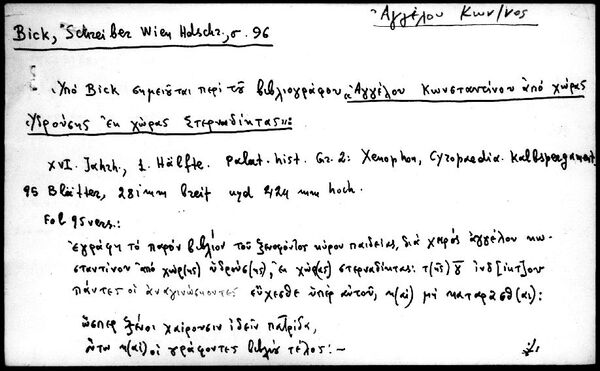 Ἀγγέλου Κων/νος
Bick, Schreiber Wien Hdschr., σ. 96
Ὑπό Bick σημειοῦται περὶ τοῦ βιβλιογράφου "Ἀγγέλου Κωνσταντίνου ἀπό χώρας
Ὑδρούσης ἐκ χώρας Στερναδίκτας":
XVI. Jahrh., 1. Hälfte. Palat. hist. Gr. 2: Xenophon, Cyropaedia. Kalbspergament
95 Blätter, 281 mm breit und 424 mm hoch.
Fol 95 vers.:
ἐγράφη τὸ παρὸν βιβλίον τοῦ ξενοφόντος κύρου παιδείας, διὰ χειρός ἀγγέλου κω-
σταντίνου ἀπό χώρ(ης) ὑδρούσ(ης), ἐκ χώρ(ας) στερναδίκτας: τ(ῆς) γ̅ ἰνδ[ικτ]ου
πάντες οἱ ἀναγινώσκοντες εὔχεσθε ὑπὲρ αὐτοῦ, κ(αὶ) μὴ καταρᾶσθ(αι):
ὥσπερ ξένοι χαίρουσιν ἰδεῖν πατρίδα,
οὕτω κ(αὶ) οἱ γράφοντες βιβλίου τέλος:—